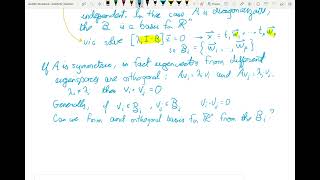 independent. In the case A is diagonalizable,
the B is a basis for R^n
via solve [λ_i I - B] x⃗ = 0 → x⃗ = t_1 w⃗_1 ... t_p w⃗_p
so B_i = {w⃗_1 ... w⃗_p}
If A is symmetric, in fact eigenvectors from different
eigenspaces are orthogonal: Av_i = λ_i v_i and Av_j = λ_j v_j
λ_i ≠ λ_j then v_i · v_j = 0
Generally, if v_i ∈ B_i, v_j ∈ B_j v_i · v_j = 0
Can we form and orthogonal basis for R^n from the B_i?